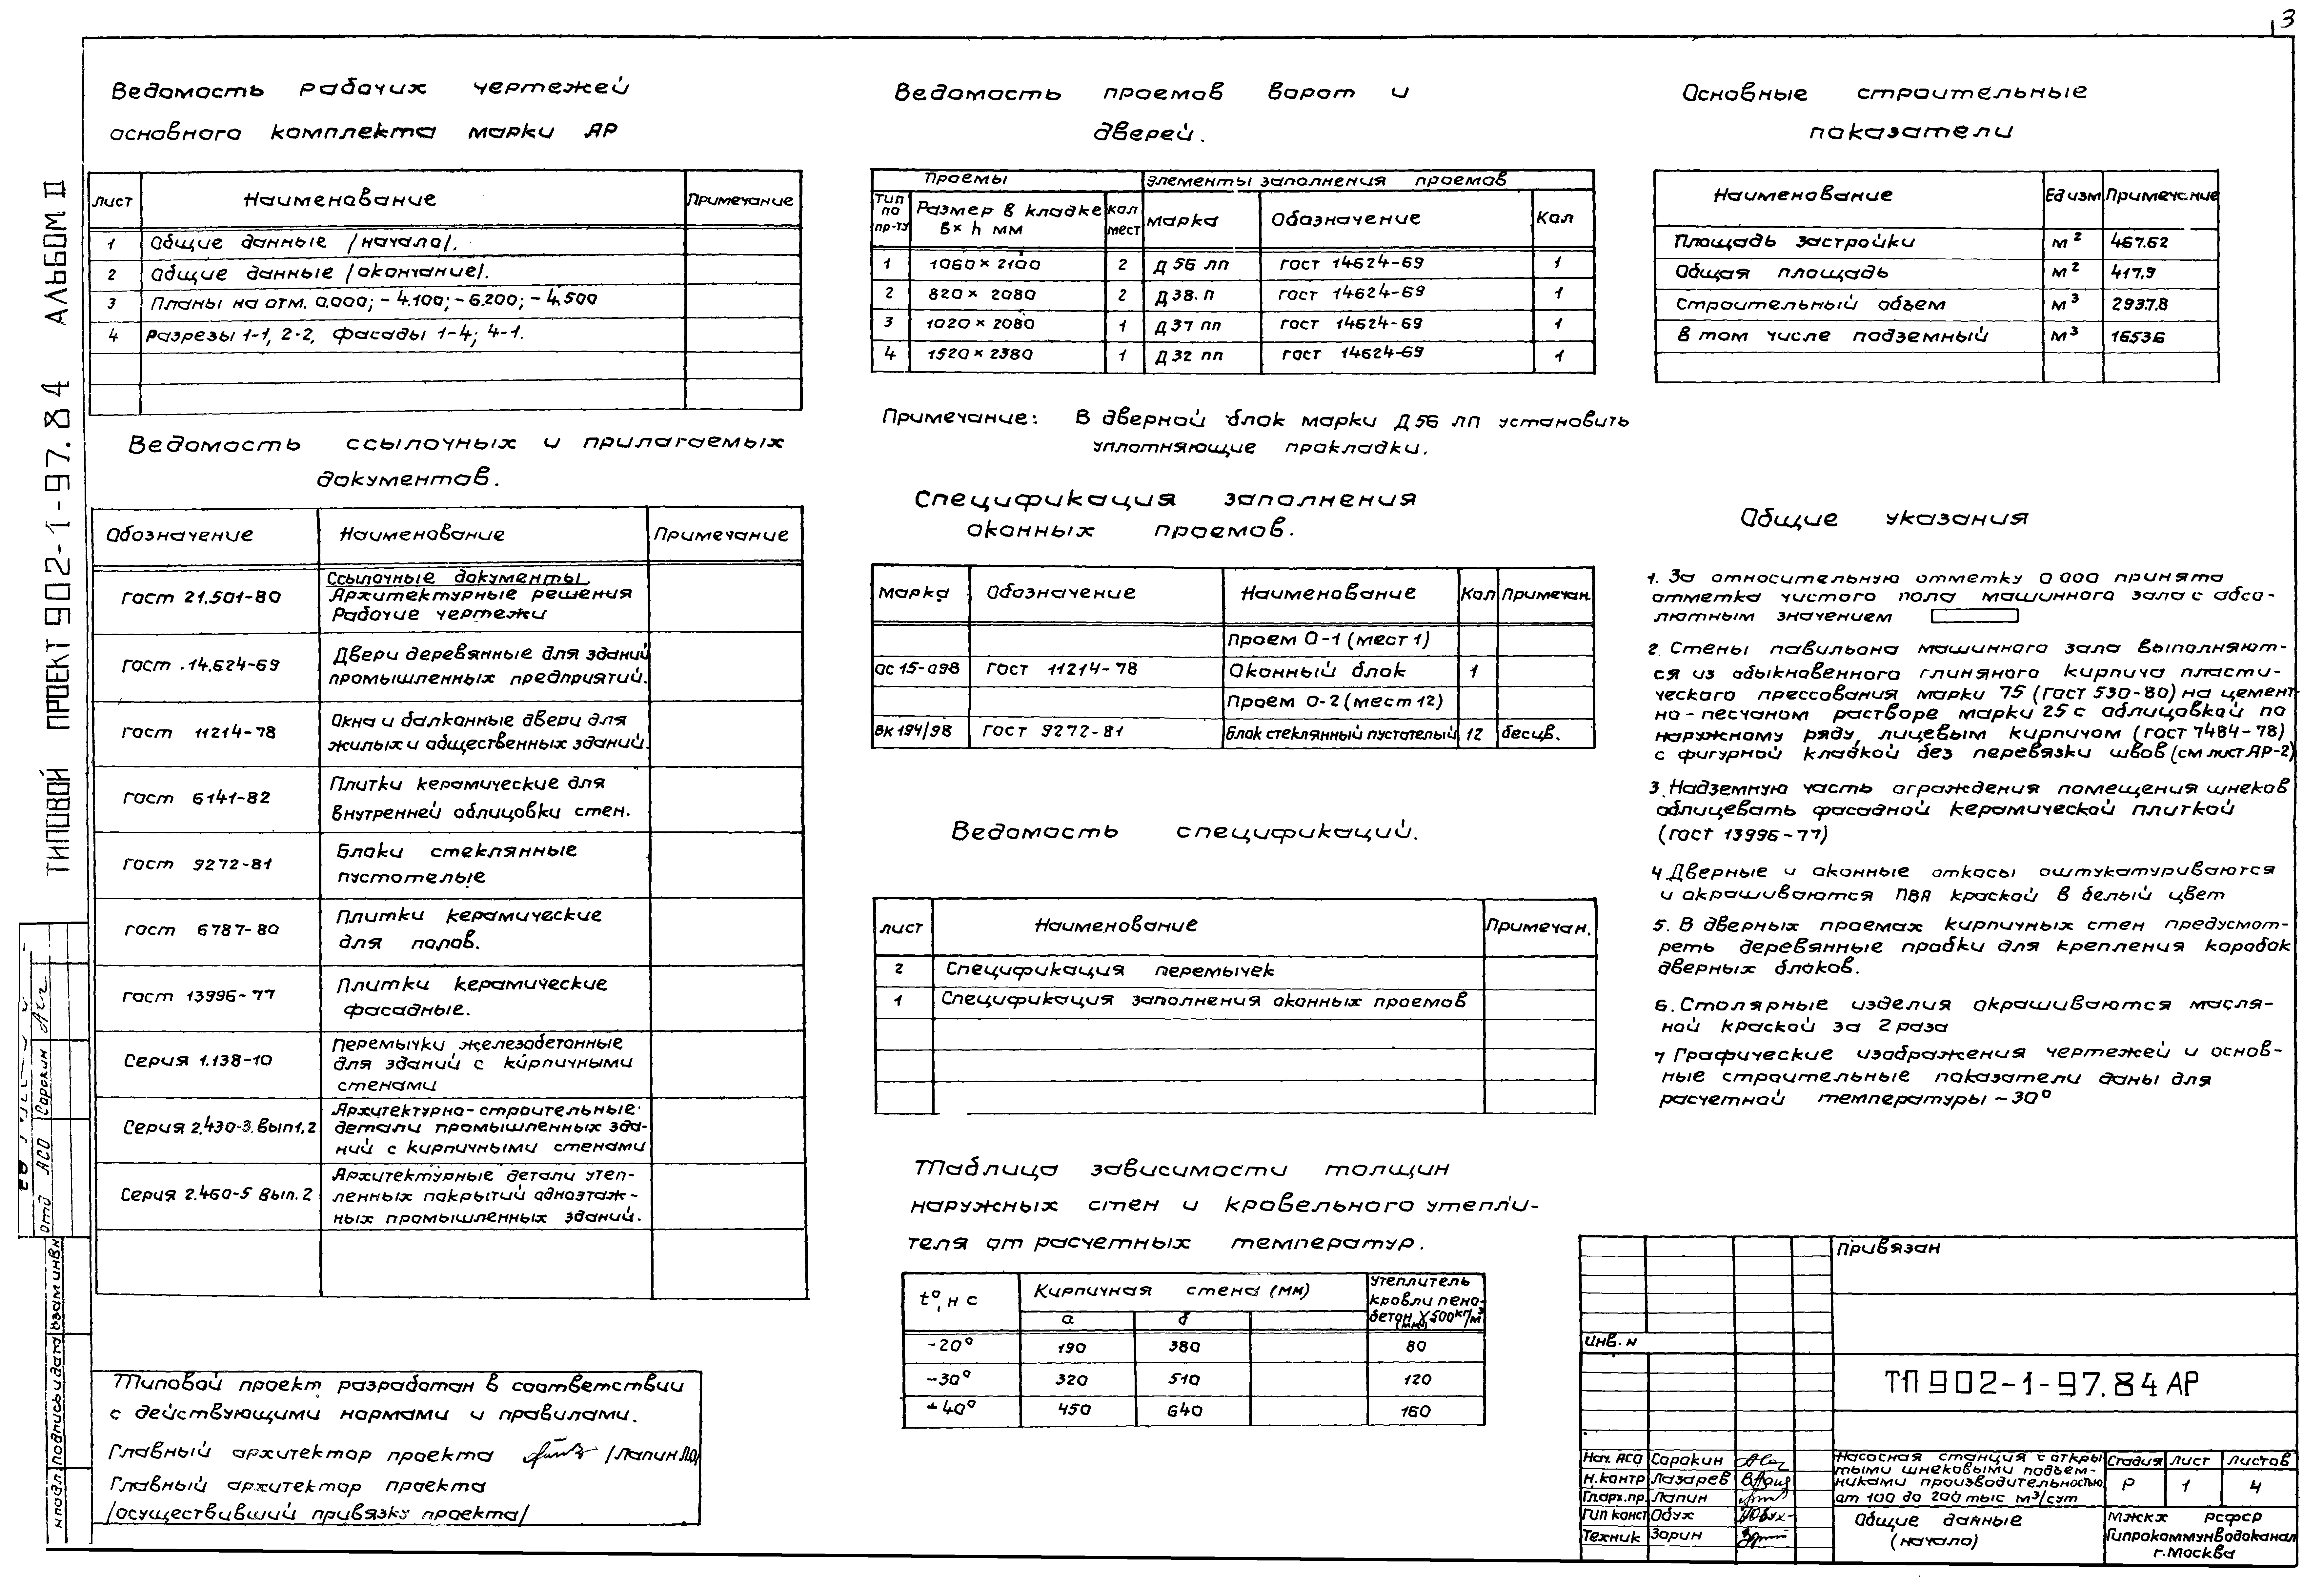 3
ТИПОВОЙ ПРОЕКТ 902-1-97.84 АЛЬБОМ II
Ведомость рабочих чертежей
основного комплекта марки АР
Лист Наименование Примечание
1 Общие данные /начало/.
2 Общие данные /окончание/.
3 Планы на отм. 0.000; -4.100; -6.200; -4.500
4 Разрезы 1-1, 2-2, фасады 1-4; 4-1.
Ведомость ссылочных и прилагаемых
документов.
Обозначение Наименование Примечание
Ссылочные документы.
ГОСТ 21.501-80 Архитектурные решения
Рабочие чертежи
ГОСТ 14.624-69 Двери деревянные для зданий
промышленных предприятий.
ГОСТ 11214-78 Окна и балконные двери для
жилых и общественных зданий.
ГОСТ 6141-82 Плитки керамические для
внутренней облицовки стен.
ГОСТ 9272-81 Блоки стеклянные
пустотелые
ГОСТ 6787-80 Плитки керамические
для полов.
ГОСТ 13996-77 Плитки керамические
фасадные.
Серия 1.138-10 Перемычки железобетонные
для зданий с кирпичными
стенами
Серия 2.430-3. вып1,2 Архитектурно-строительные
детали промышленных зда-
ний с кирпичными стенами
Серия 2.460-5 вып.2 Архитектурные детали утеп-
ленных покрытий одноэтаж-
ных промышленных зданий.
Типовой проект разработан в соответствии
с действующими нормами и правилами.
Главный архитектор проекта /Лапин
Главный архитектор проекта
/осуществивший привязку проекта/
Ведомость проемов ворот и
дверей.
Проемы Элементы заполнения проемов
Тип по пр-ту Размер в кладке в×h мм Кол мест Марка Обозначение Кол
1 1060×2100 2 Д 56 лп ГОСТ 14624-69 1
2 820×2080 2 Д 38. п ГОСТ 14624-69 1
3 1020×2080 1 Д 37 пп ГОСТ 14624-69 1
4 1520×2380 1 Д 32 пп ГОСТ 14624-69 1
Примечание: В дверной блок марки Д 56 лп установить
уплотняющие прокладки.
Спецификация заполнения
оконных проемов.
Марка Обозначение Наименование Кол Примечан.
Проем О-1 (мест 1)
ОС 15-09В ГОСТ 11214-78 Оконный блок 1
Проем О-2 (мест 12)
БК 194/98 ГОСТ 9272-81 Блок стеклянный пустотелый 12 бесцв.
Ведомость спецификаций.
Лист Наименование Примечан.
2 Спецификация перемычек
1 Спецификация заполнения оконных проемов
Таблица зависимости толщин
наружных стен и кровельного утепли-
теля от расчетных температур.
t°, н с Кирпичная стена (мм) Утеплитель кровли пено-бетон γ 500 кг/м³ (мм)
а б
-20° 190 380 80
-30° 320 510 120
-40° 450 640 160
Основные строительные
показатели
Наименование Ед изм Примечание
Площадь застройки м² 467.62
Общая площадь м² 417.9
Строительный объем м³ 2937.8
в том числе подземный м³ 1653.6
Общие указания
1. За относительную отметку 0 000 принята
отметка чистого пола машинного зала с абсо-
лютным значением
2. Стены павильона машинного зала выполняют-
ся из обыкновенного глиняного кирпича пласти-
ческого прессования марки 75 (ГОСТ 530-80) на цемент
но-песчаном растворе марки 25 с облицовкой по
наружному ряду, лицевым кирпичом (ГОСТ 7484-78)
с фигурной кладкой без перевязки швов (см лист АР-2)
3. Надземную часть ограждения помещения шнеков
облицевать фасадной керамической плиткой
(ГОСТ 13996-77)
4 Дверные и оконные откосы оштукатуриваются
и окрашиваются ПВА краской в белый цвет
5. В дверных проемах кирпичных стен предусмот-
реть деревянные пробки для крепления коробок
дверных блоков.
6. Столярные изделия окрашиваются масля-
ной краской за 2 раза
7 Графические изображения чертежей и основ-
ные строительные показатели даны для
расчетной температуры -30°
Привязан
Инв. н
ТП 902-1-97.84 АР
Нач. АСО Сорокин
Н.контр Лазарев
Гл арх. пр. Лапин
Гип конст Обух
Техник Зорин
Насосная станция с откры
тыми шнековыми подъем-
никами производительностью
от 100 до 200 тыс м³/сут
Стадия Лист Листов
Р 1 4
Общие данные
(начало)
МЖКХ РСФСР
Гипрокоммунводоканал
г. Москва
Отд АСО Сорокин
н подл Подпись и дата Взам инв н